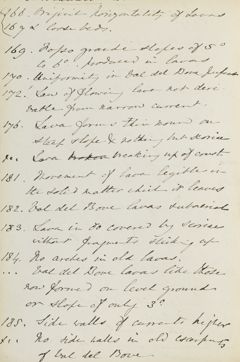 166. Original horizontality of lavas
167 & loose beds.
169. Popo grande slopes of 5°
to 6° produced in lavas
170. Uniformity in Val del Bove
172. Law of flowing lava not deri
vable from narrow current.
176. Lava forms thin round on
steep slope & nothing but scoriae
Lava breaking up of crust
181. Movement of lava legible in
the solid matter which it leaves
182. Val del Bove lavas subaerial
183. Lava in covered by scoriae
without fragments sticking up
184. No arches in old lavas.
... Val del Bove lavas like those
now formed on level ground
or slope of only 3°
185. Side walls of currents higher
No side walls in old escarpmts
of Val del Bove